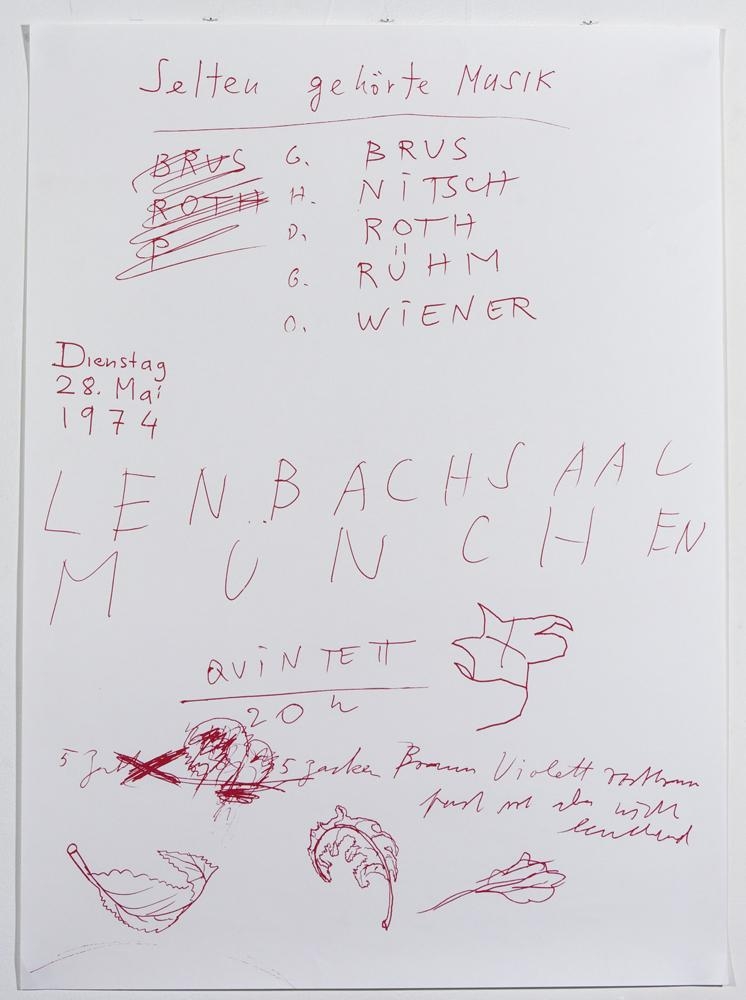 Selten gehörte MUSIK
BRUS G. BRUS
ROTH H. NITSCH
P D. ROTH
G. RÜHM
O. WIENER
Dienstag
28. Mai
1974
LENBACHSAAL
MÜNCHEN
QUINTETT
20 h
5 5 zacken Braun Violett rostbraun
rot aber nicht
leuchtend